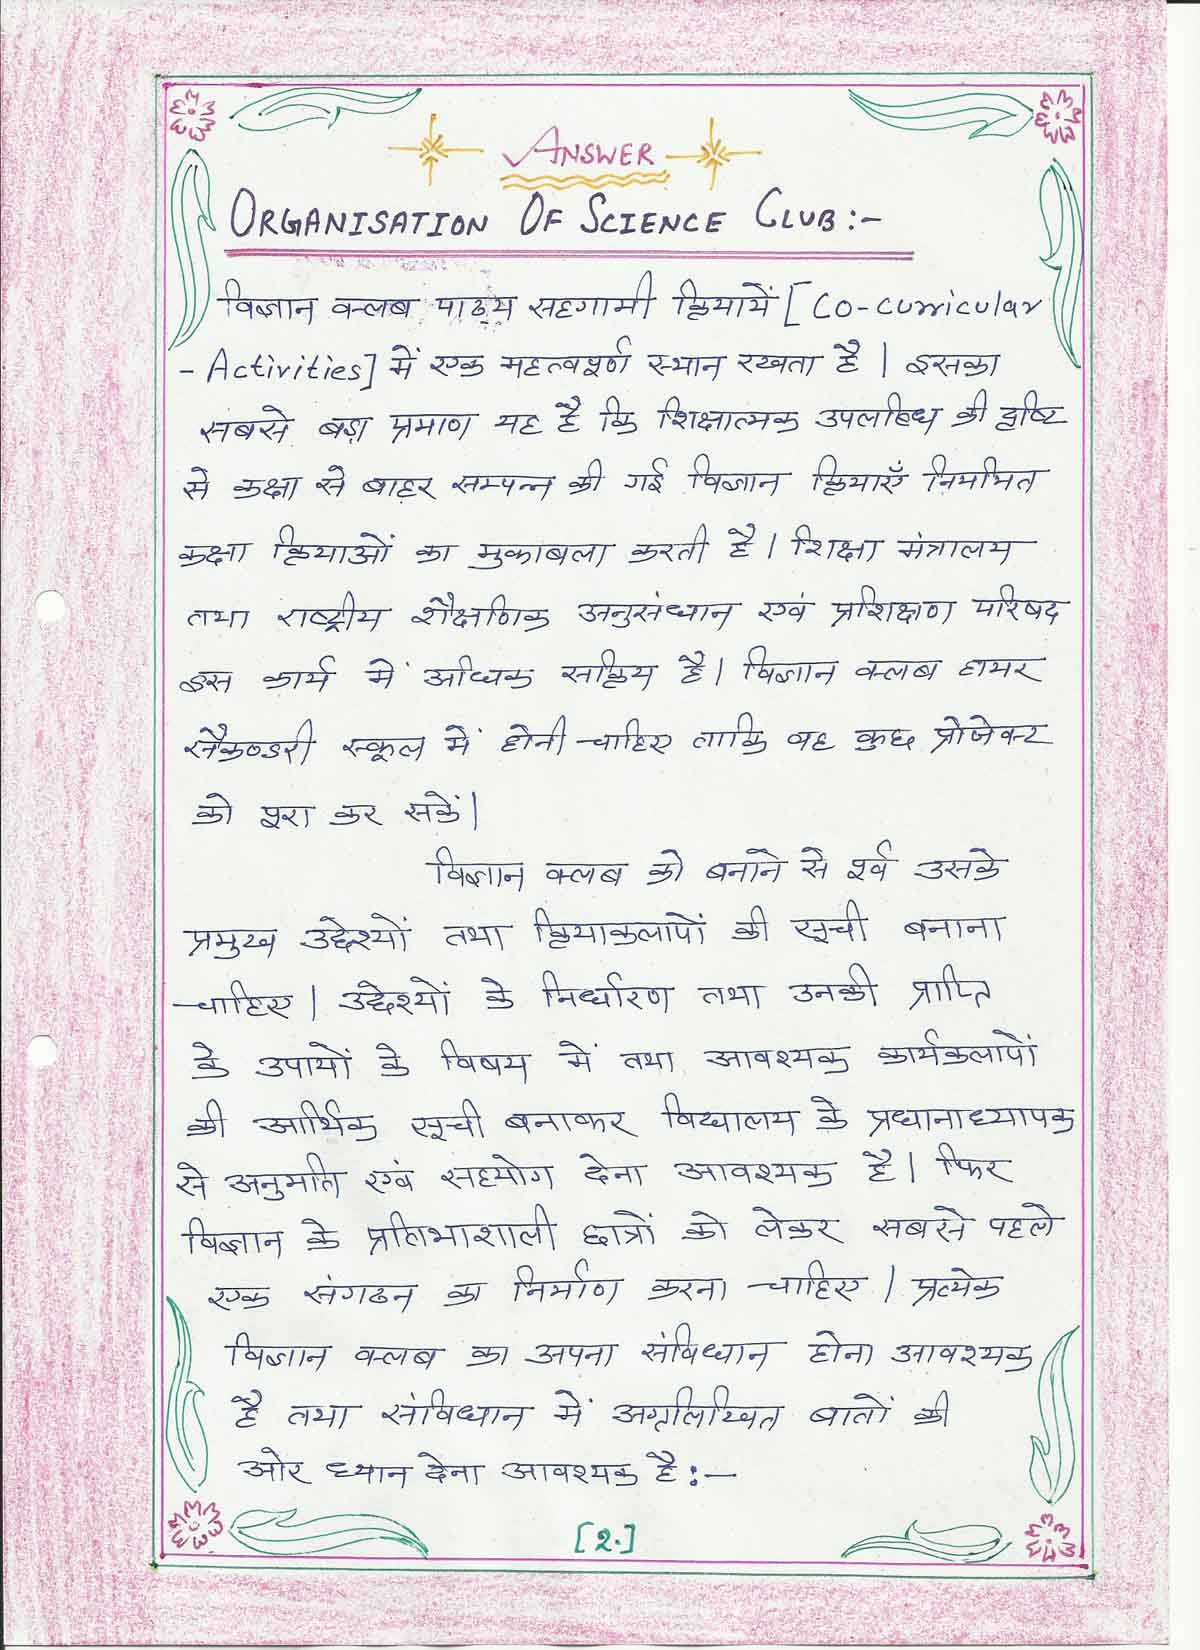 ANSWER
ORGANISATION OF SCIENCE CLUB:-
विज्ञान क्लब पाठ्य सहगामी क्रियायें [Co-curricular
- Activities] में एक महत्वपूर्ण स्थान रखता है। इसका
सबसे बड़ा प्रमाण यह है कि शिक्षात्मक उपलब्धि की दृष्टि
से कक्षा से बाहर सम्पन्न की गई विज्ञान क्रियाएँ नियमित
कक्षा क्रियाओं का मुकाबला करती है। शिक्षा मंत्रालय
तथा राष्ट्रीय शैक्षणिक अनुसंधान एवं प्रशिक्षण परिषद
इस कार्य में अधिक सक्रिय है। विज्ञान क्लब हायर
सैकण्डरी स्कूल में होनी चाहिए ताकि वह कुछ प्रोजेक्ट
को पूरा कर सकें।
विज्ञान क्लब को बनाने से पूर्व उसके
प्रमुख उद्देश्यों तथा क्रियाकलापों की सूची बनाना
चाहिए। उद्देश्यों के निर्धारण तथा उनकी प्राप्ति
के उपायों के विषय में तथा आवश्यक कार्यकलापों
की आर्थिक सूची बनाकर विद्यालय के प्रधानाध्यापक
से अनुमति एवं सहयोग देना आवश्यक है। फिर
विज्ञान के प्रतिभाशाली छात्रों को लेकर सबसे पहले
एक संगठन का निर्माण करना चाहिए। प्रत्येक
विज्ञान क्लब का अपना संविधान होना आवश्यक
है तथा संविधान में अग्रलिखित बातों की
ओर ध्यान देना आवश्यक है:-
[2.]